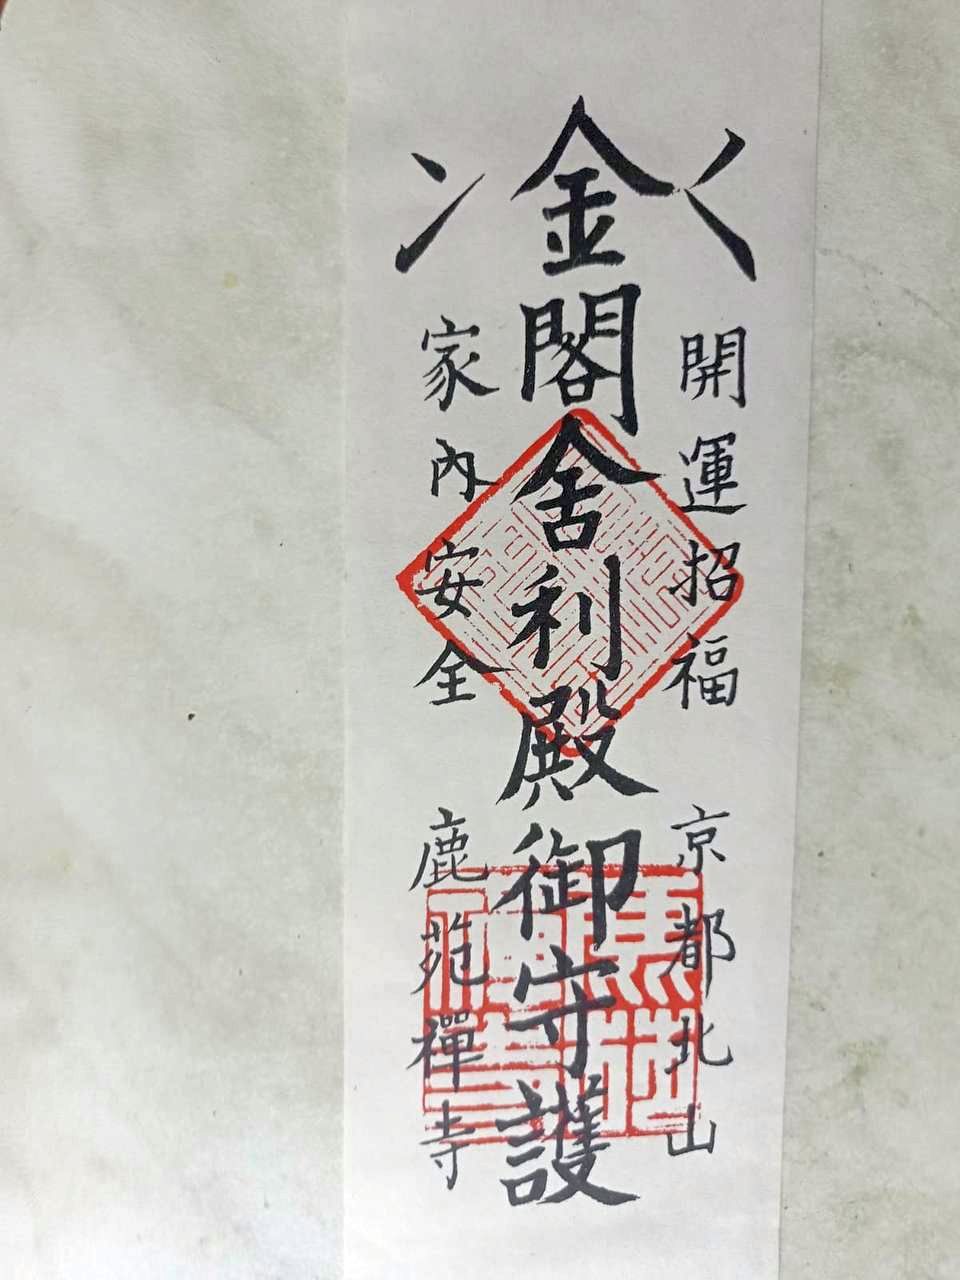 開運招福
京都北山
金閣舍利殿御守護
家內安全
鹿苑禪寺